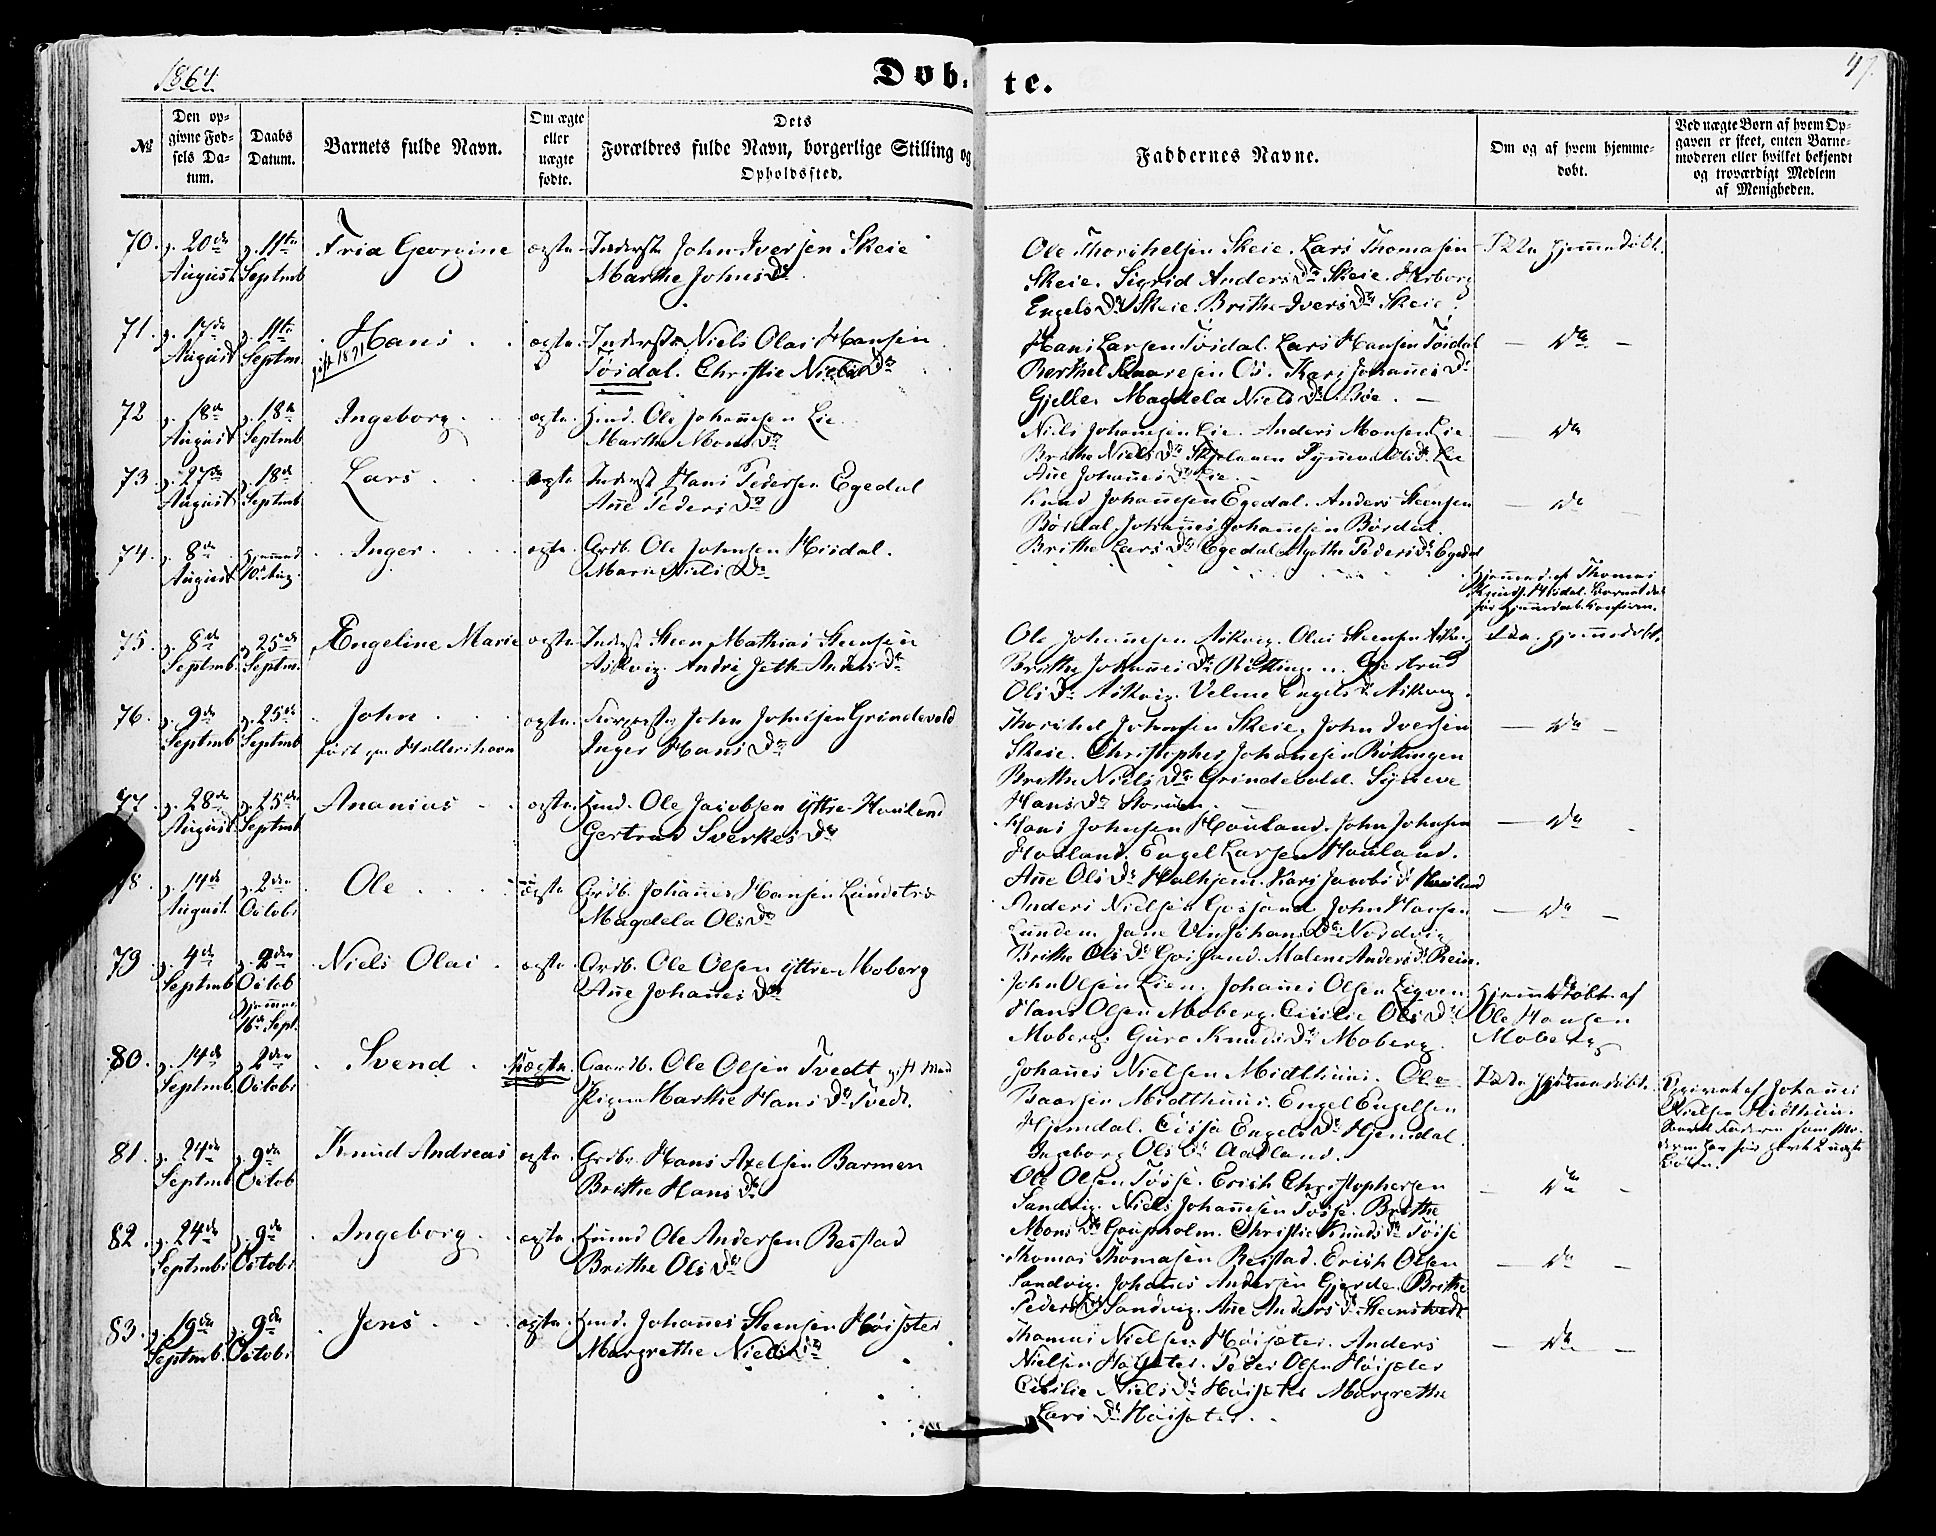 1864.
Døb. te.
47.
№
Den op-
givne Fød-
sels Da-
tum.
Daabs
Datum.
Barnets fulde Navn.
Om ægte
eller
uægte
fødte.
Dets
Forældres fulde Navn, borgerlige Stilling og
Opholdssted.
Faddernes Navne.
Om og af hvem hjemme-
døbt.
Ved uægte Børn af hvem Op-
gaven er skeet, enten Barne-
moderen eller hvilket bekjendt
og troværdigt Medlem
af Menigheden.
70. d. 20de August d. 11te Septmb Georgine ægte Inderst John Iversen Skeie
Marthe Johns Dr
Ole Skeie. Lars Thomasen
Skeie. Sigrid Anders Dr Skeie. Herborg
Engels Dr Skeie. Brithe Ivers Dr Skeie
Ikke hjemmedøbt.
71. d. 17de August d. 11te Septm. Hans ægte Inderst Niels Olai Hansen
Tøsdal. Christie Niels Dr
Hans Larsen Tøsdal. Lars Hansen Tøsdal
Berthel Os. Kari Johannes Dr
Gjelle. Magdela Niels Dr Bøe.
Do
72 d. 18de August d. 18de Septmb Ingeborg ægte Huusm. Ole Johannesen Lie
Marthe Mons Dr
Niels Johannesen Lie. Anders Monsen Lie
Brithe Niels Dr Synneve Ols Dr Lie
Ane Johannes Dr Lie.
Do
73. d. 27de August d. 18de Septmb Lars ægte Inderst Hans Pedersen Egedal
Ane Peders Dr
Knud Johannesen Egedal. Anders Steensen
Børdal. Johannes Johannesen Børdal.
Brithe Lars Dr Egedal. Agathe Peders Dr Egedal
Do
74. d. 8de August hjemmed. 10de Aug. Inger ægte Grdb. Ole Johnsen Hisdal.
Marie Niels Dr
Hjemmed. af Thomas
Knuds. Hisdal. Barnet død
før Hjemmedaab. Konfirm.
75. d. 8de Septmb d. 25de Septm. Engeline Marie ægte Inderst Steen Mathias Steensen
Askvig. Andri Jeth Anders Dr
Ole Johannesen Askvig. Olai Steensen Askvig
Brithe Johannes Dr Røttingen. Gjertrud
Ols Dr Askvig. Velme Engels Dr Askvig.
Ikke hjemmedøbt.
76. d. 9de Septmb d. 25de Septmb John
født paa Hellershavn
ægte John Johnsen Grindevold
Inger Hans Dr
Johnsen Skeie. John Iversen
Skeie. Christopher Johannesen Røttingen
Brethe Niels Dr Grindevold. Synneve
Hans Dr
Do
77. d. 28de August d. 25de Septmb Ananias ægte Huusm. Ole Jacobsen Yttre Hauland
Gertrud Sverkes Dr
Hans Johnsen Hauland. John Johnsen
Hauland. Engel Larsen Hauland.
Ane Ols Dr Halhjem. Kari Jacobs Dr Hauland
Do
78. d. 14de August d. 2den Octobr Ole ægte Grdb. Johannes Hansen Lundetræ
Magdela Ols Dr
Anders Nielsen Gossand. John Larsen
Lunden. Jane Vin Johans Dr Nordvig
Brithe Ols Dr Gossand. Malene Anders Dr Rein.
Do
79 d. 4de Septmb d. 2den Octob
hjemmed.
16de Sept.
Niels Olai ægte Grdb. Ole Olsen Yttre Moberg
Ane Johannes Dr
John Olsen Lien. Johannes Olsen Ligven
Hans Olsen Moberg. Cicilie Ols Dr
Moberg. Guro Knuds Dr Moberg.
Hjemmedøbt af
Ole Hansen
Moberg
80. d. 14de Septmb d. 2den Octobr Svend Uægte. Gaardb. Ole Olsen Tvedt gift Mand
Pigen Marthe Hans Dr Tvedt.
Johannes Nielsen Midthuus. Ole
Baarsen Midthuus. Engel Engelsen
Hjemdal. Cissa Engels Dr Hjemdal
Ingeborg Ols Dr Aadland.
Ikke hjemmedøbt.
Opgivet af Johannes
Nielsen Midthuus.
81. d. 24de Septmb d. 9de Octob Knud Andreas ægte Grdb. Hans Axelsen Barmen
Brithe Hans Dr
Ole Olsen Tøsse. Erich Christophersen
Sandvig. Niels Johannesen Tøsse. Brithe
Mons Dr Christie Knuds Dr Tøsse
Do
82. d. 24de Septmbr d. 9de Octobr Ingeborg ægte Huusmd Ole Andersen Røistad
Brithe Ols Dr
Thomas Thomasen Røistad. Erich Olsen
Sandvig. Johannes Andersen Gjerde. Brithe
Peders Dr Sandvig. Ane Anders Dr
Do
83. d. 19de Septmb. d. 9de Octobr Jens ægte Huusm. Johannes Steensen Høisæter
Margrethe Niels Dr
Thomas Nielsen Høisæter. Anders
Nielsen Høisæter. Peder Olsen Høisæter
Cicilie Niels Dr Høisæter Margrethe
Lars Dr Høisæter.
Do